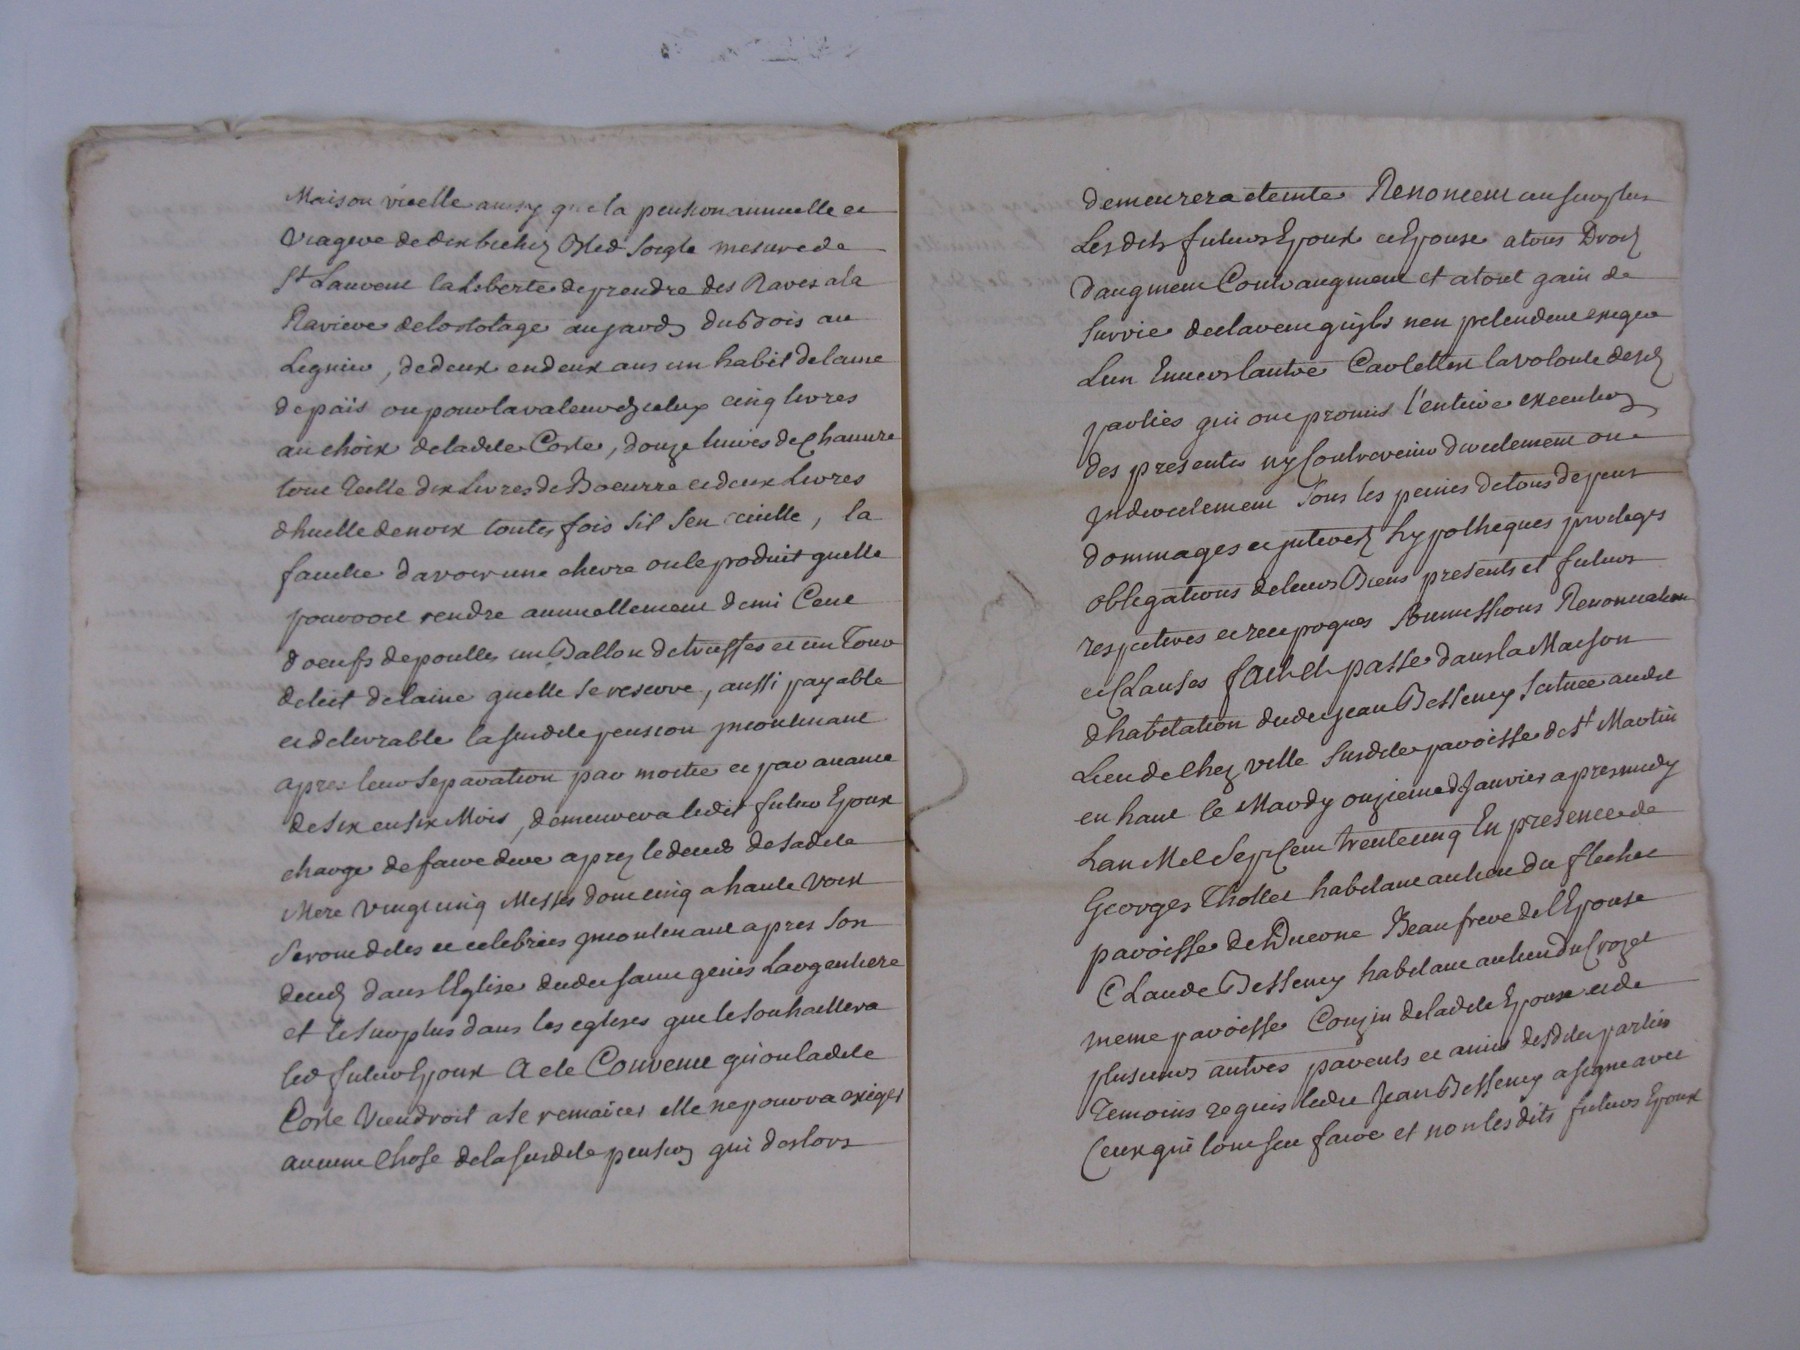 Maison vielle aussy que la pension annuelle et
viagere de dix bichez Bled Soigle mesure de
St Laurent la Liberté de prendre des Raves a la
Raviere de lortolage au jardz du bois au
Legnier, de deux en deux ans un habit de laine
de païs ou pour la valeur dycelux cinq livres
au choix de ladite Coste, douze livres de Chanvre
tout Teille dix Livres de Boeurre et deux Livres
dhuille de noix toutes fois sil sen ceuille, la
faculte davoir une chevre ou le produit quelle
pourroit rendre annuellement demi Cent
doeufs de poulles un Ballon de truffes et un Tour
de lict de laine quelle se reserve, aussi payable
et delivrable la susdite pension incontinant
apres leur separation par moitie et par avance
de six en six Mois, demeurera ledit futur Epoux
charge de faire dire aprez le deces de sadite
Mere vingt cinq Messes dont cinq a haute voix
seront dites et celebrées incontinant apres son
decez dans lEglise dudit saint genis Largentiere
et le surplus dans les eglises que le souhaittera
led futur Epoux A ete Convenu qu'ou ladite
Coste viendroit a se remarier elle ne pourra exiger
aucune Chose de la susdite pension qui deslors
demeurera eteinte Renoncent au surplus
Lesdits futurs Epoux et Epouse a tous Droits
daugment Contraugment et a tout gain de
survie declarent quyls nen pretendent exiger
Lun Envers lautre Car telle est la volonte desd
parties qui ont promis l'entiere execution
des presentes ny Contrevenir directement ou
Indirectement sous les peines de tous depens
dommages et interetz hypotheques privileges
obligations de leurs Biens presents et futurs
respectives et reciproques soumissions Renonciations
et Clauses fait et passé dans la Maison
dhabitation dudit Jean Bessency scituée audit
Lieu de Chez ville susdite paroisse de St Martin
en haut le Mardy onzieme Janvier apres midy
Lan Mil Sept Cent trente cinq En presence de
Georges Thollet habitant au lieu du flechet
paroisse de Duerne Beaufrere de lEpouse
Claude Bessency habitant au lieu du Crozet
meme paroisse Couzin de ladite Epouse et de
plusieurs autres parents et amis desdites parties
Temoins requis ledit Jean Bessency a signe avec
Ceux qui lont sçu faire et non lesdits futurs Epoux